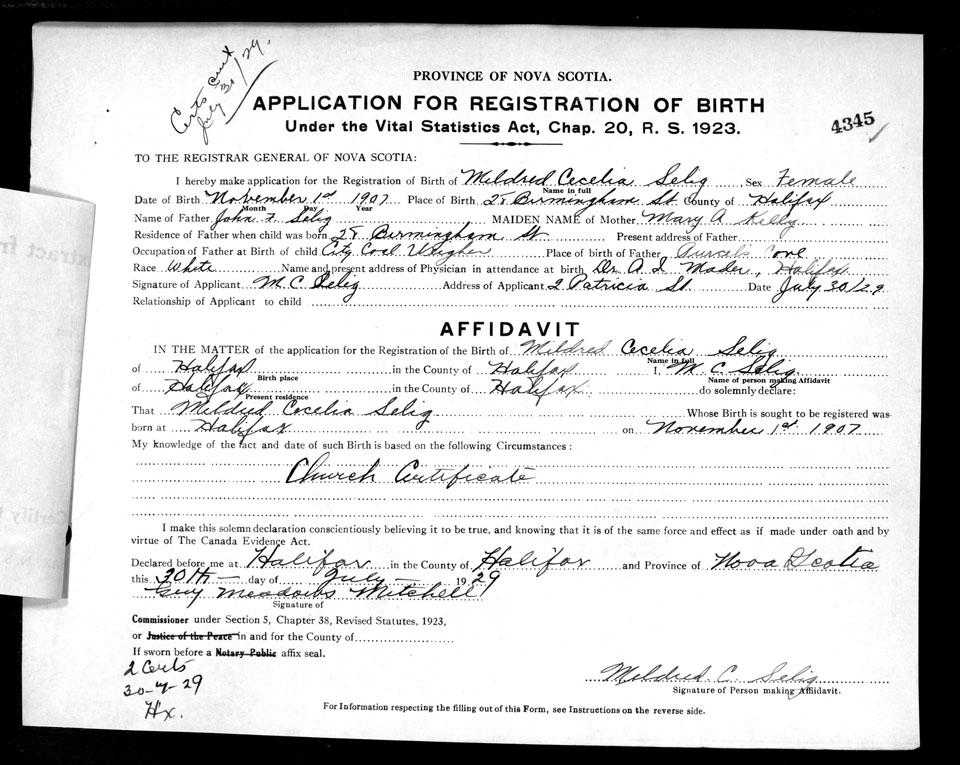 Certs sent
July 30/29.
PROVINCE OF NOVA SCOTIA.
APPLICATION FOR REGISTRATION OF BIRTH
Under the Vital Statistics Act, Chap. 20, R. S. 1923.
4345
TO THE REGISTRAR GENERAL OF NOVA SCOTIA:
I hereby make application for the Registration of Birth of Mildred Cecelia Selig Sex Female
Name in full
Date of Birth November 1st 1907 Place of Birth 28 Birmingham St County of Halifax
Month Day Year
Name of Father John F. Selig MAIDEN NAME of Mother Mary A Kelly
Residence of Father when child was born 28 Birmingham St Present address of Father
Occupation of Father at Birth of child City Coal Weigher Place of birth of Father Purcels Cove
Race White Name and present address of Physician in attendance at birth Dr. A. I. Mader, Halifax
Signature of Applicant M. C. Selig Address of Applicant 2 Patricia St. Date July 30/29
Relationship of Applicant to child
AFFIDAVIT
IN THE MATTER of the application for the Registration of the Birth of Mildred Cecelia Selig
Name in full
of Halifax in the County of Halifax I, M. C. Selig
Birth place Name of person making Affidavit
of Halifax in the County of Halifax do solemnly declare:
Present residence
That Mildred Cecelia Selig Whose Birth is sought to be registered was
born at Halifax on November 1st 1907
My knowledge of the fact and date of such Birth is based on the following Circumstances:
Church Certificate
I make this solemn declaration conscientiously believing it to be true, and knowing that it is of the same force and effect as if made under oath and by
virtue of The Canada Evidence Act.
Declared before me at Halifax in the County of Halifax and Province of Nova Scotia
this 30th day of July 1929
Guy Meadows Mitchell
Signature of
Commissioner under Section 5, Chapter 38, Revised Statutes, 1923,
or Justice of the Peace in and for the County of
If sworn before a Notary Public affix seal.
2 Certs
30-7-29
Hx.
Mildred C. Selig
Signature of Person making Affidavit.
For Information respecting the filling out of this Form, see Instructions on the reverse side.